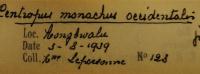 Centropus monachus occidentalis
Loc. Mongbwalu
Date 5-5-1939
Coll. Mme Lepersonne No 123